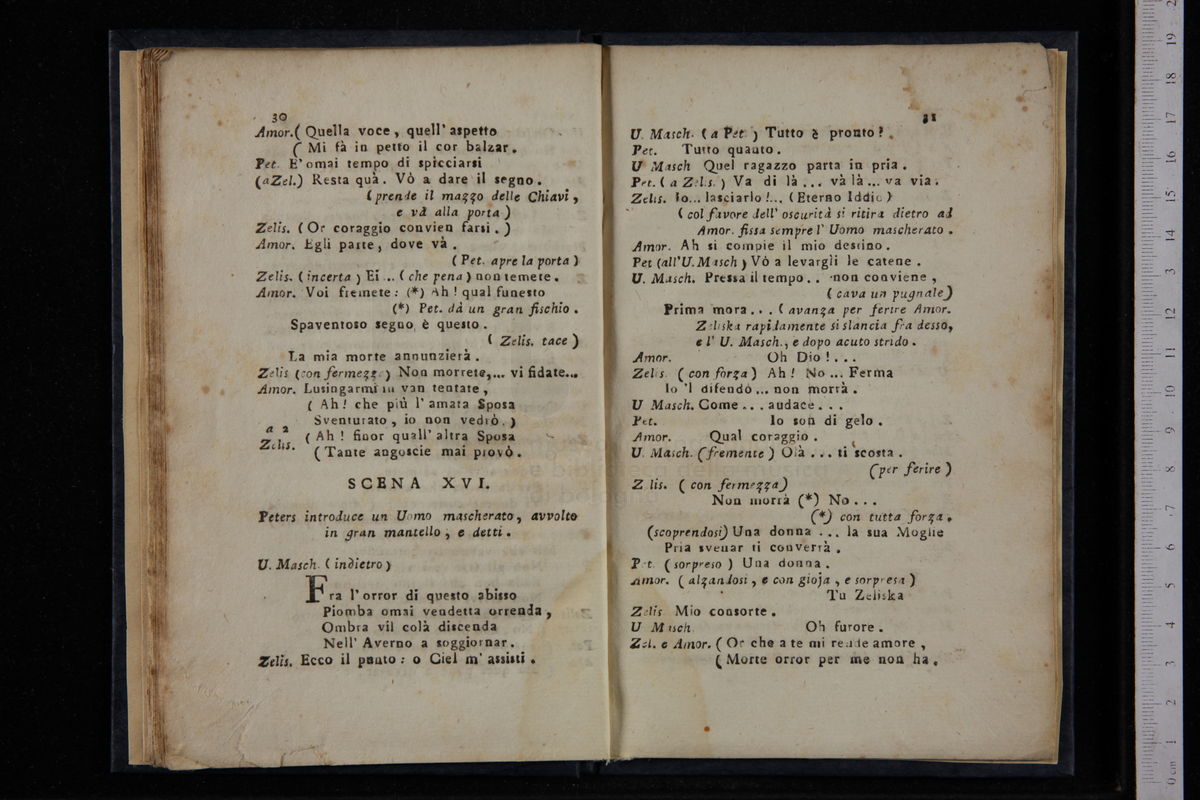 30
Amor.( Quella voce, quell' aspetto
( Mi fà in petto il cor balzar.
Pet. E' omai tempo di spicciarsi
(a Zel.) Resta quà. Vò a dare il segno.
(prende il mazzo delle Chiavi,
e và alla porta)
Zelis. (Or coraggio convien farsi.)
Amor. Egli parte, dove và.
(Pet. apre la porta)
Zelis. (incerta) Ei... (che pena) non temete.
Amor. Voi fremete: (*) Ah! qual funesto
(*) Pet. dà un gran fischio.
Spaventoso segno è questo.
( Zelis. tace)
La mia morte annunzierà.
Zelis (con fermezza) Non morrete,... vi fidate...
Amor. Lusingarmi in van tentate,
( Ah! che più l' amata Sposa
Sventurato, io non vedrò.)
a 2
Zelis. ( Ah! finor quall' altra Sposa
( Tante angoscie mai provò.
SCENA XVI.
Peters introduce un Uomo mascherato, avvolto
in gran mantello, e detti.
U. Masch. (indietro)
Fra l' orror di questo abisso
Piomba omai vendetta orrenda,
Ombra vil colà discenda
Nell' Averno a soggiornar.
Zelis. Ecco il punto: o Ciel m' assisti.
31
U. Masch. (a Pet.) Tutto è pronto?
Pet. Tutto quanto.
U Masch Quel ragazzo parta in pria.
Pet. (a Zelis.) Va di là... và là... va via.
Zelis. Io... lasciarlo!... (Eterno Iddio)
(col favore dell' oscurità si ritira dietro ad
Amor. fissa sempre l' Uomo mascherato.
Amor. Ah si compie il mio destino.
Pet (all' U. Masch) Vò a levargli le catene.
U. Masch. Pressa il tempo.. non conviene,
(cava un pugnale)
Prima mora... (avanza per ferire Amor.
Zeliska rapidamente si slancia fra desso,
e l' U. Masch., e dopo acuto strido.
Amor. Oh Dio!...
Zelis. (con forza) Ah! No... Ferma
Io 'l difendo... non morrà.
U Masch. Come... audace...
Pet. Io son di gelo.
Amor. Qual coraggio.
U. Masch. (fremente) Olà... ti scosta.
(per ferire)
Zelis. (con fermezza)
Non morrà (*) No...
(*) con tutta forza.
(scoprendosi) Una donna... la sua Moglie
Pria svenar ti converrà.
Pet. (sorpreso) Una donna.
Amor. (alzandosi, e con gioja, e sorpresa)
Tu Zeliska
Zelis Mio consorte.
U Masch. Oh furore.
Zel. e Amor. ( Or che a te mi rende amore,
( Morte orror per me non ha.
0 cm 1 2 3 4 5 6 7 8 9 10 11 12 13 14 15 16 17 18 19